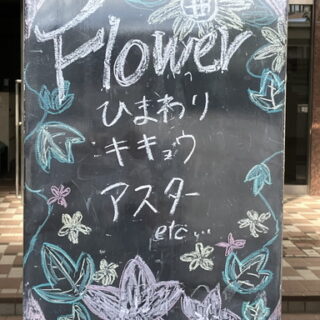 Flower
ひまわり
キキョウ
アスター
etc...